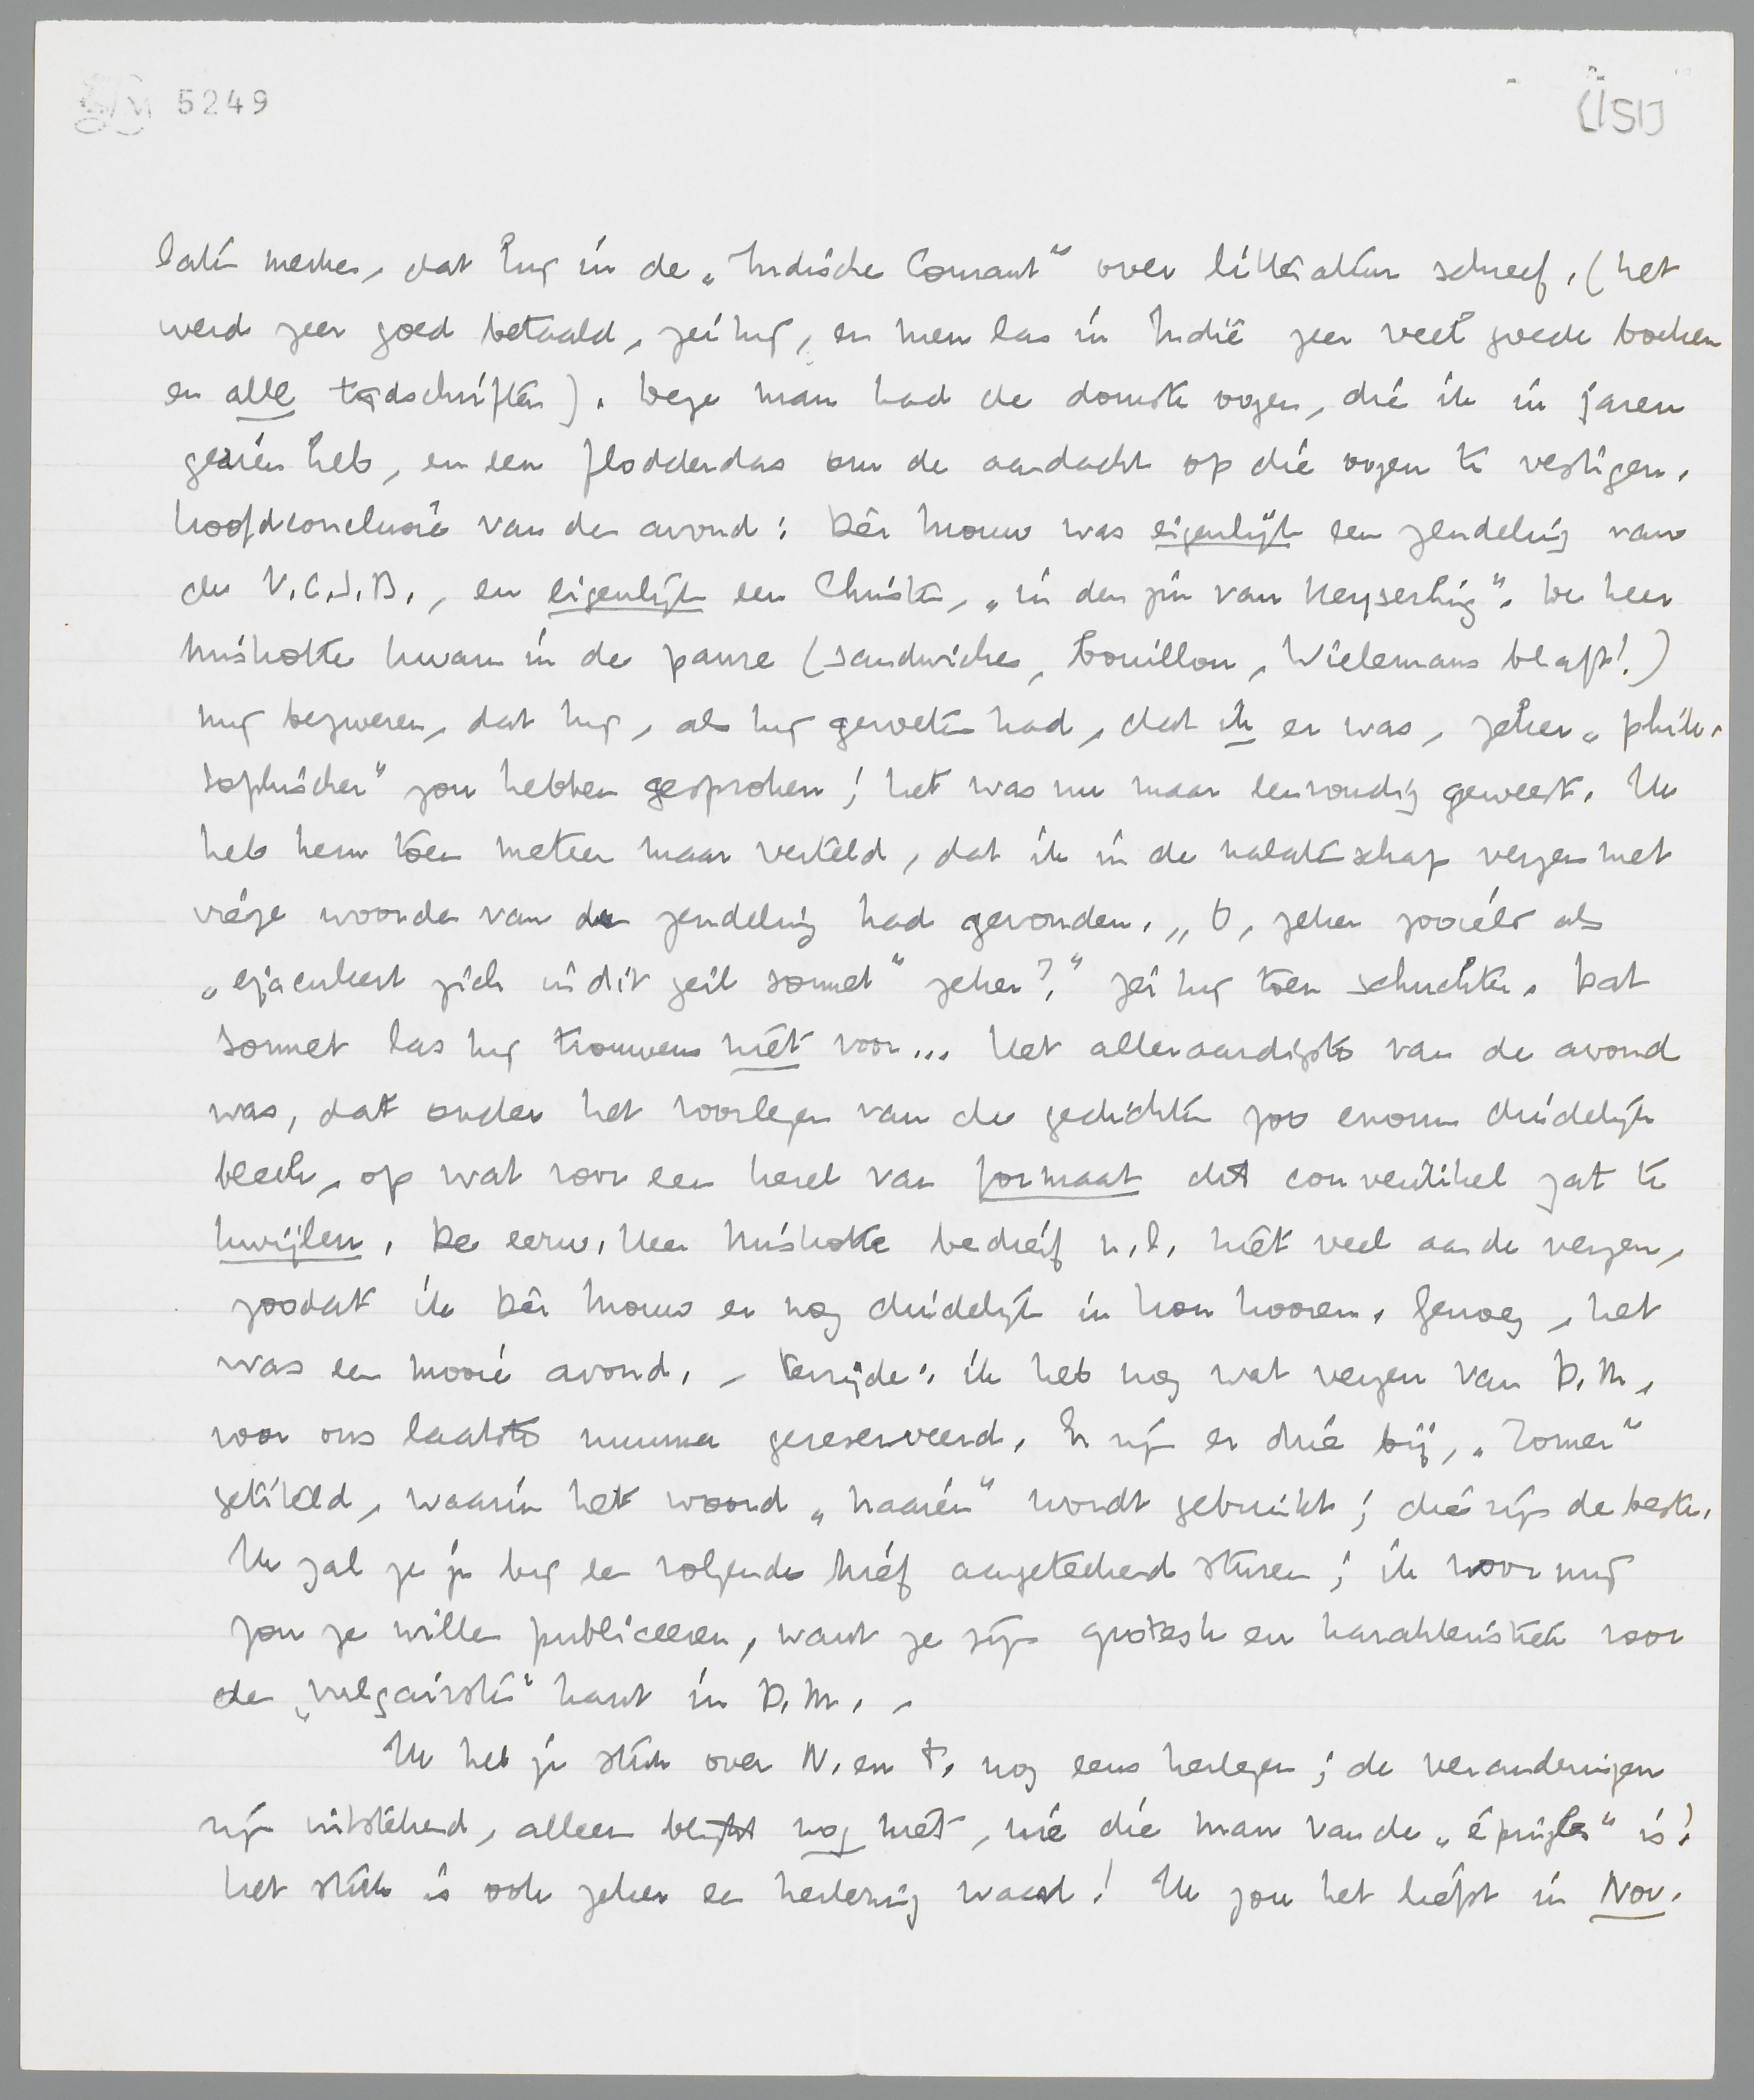 5249
(151)
laten merken, dat hij in de „Indische Courant" over litteratuur schreef, (het
werd zeer goed betaald, zei hij, en men las in Indië zeer veel goede boeken
en alle tijdschriften). Deze man had de domste oogen, die ik in jaren
gezien heb, en een flodderdas om de aandacht op die oogen te vestigen.
Hoofdconclusie van den avond: Dèr Mouw was eigenlijk een zendeling van
de V.C.S.B., en eigenlijk een Christen, „in den zin van Keyserling". De heer
Miskotte kwam in de pauze (sandwiches, bouillon, Wielemans blaft!)
mij bezweren, dat hij, als hij geweten had, dat ik er was, zeker „philo-
sophischer" zou hebben gesproken; het was nu maar eenvoudig geweest. Ik
heb hem toen meteen maar verteld, dat ik in de nalatenschap verzen met
vieze woorden van den zendeling had gevonden. „O, zeker zooiets als
„ejaculeert zich in dit geil sonnet" zeker?" zei hij toen schuchter. Dat
sonnet las hij trouwens niet voor... Het alleraardigste van de avond
was, dat onder het voorlezen van de gedichten zoo enorm duidelijk
bleek, op wat voor een kerel van formaat dit conventikel zat te
kwijlen. De eerw. Heer Miskotte bedierf n.l. niet veel aan de verzen,
zoodat ik Dèr Mouw er nog duidelijk in kon hooren. Genoeg, het
was een mooie avond. - Terzijde: ik heb nog wat verzen van D.M.,
voor ons laatste nummer gereserveerd. Er zijn er drie bij, „Zomer"
getiteld, waarin het woord „naaien" wordt gebruikt; die zijn de beste.
Ik zal ze je bij een volgende brief aangeteekend sturen; ik voor mij
zou ze willen publiceeren, want ze zijn grotesk en karakteristiek voor
de „vulgairste" kant in D.M. -
Ik heb je stuk over N. en F. nog eens herlezen; de veranderingen
zijn uitstekend, alleen blijkt nog niet, wie die man van de „épingles" is!
Het stuk is ook zeker een herlezing waard! Ik zou het liefst in Nov.